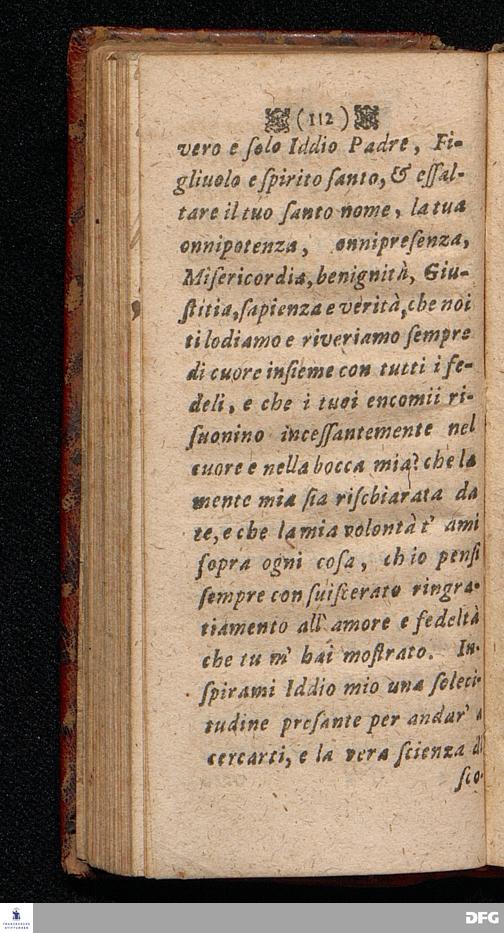 (112)
vero e ſolo Iddio Padre, Fi-
gliuolo e ſpirito ſanto, & eſſal-
tare il tuo ſanto nome, la tua
onnipotenza, onnipreſenza,
Miſericordia, benignità, Giu-
ſtitia, ſapienza e verità, che noi
ti lodiamo e riveriamo ſempre
di cuore inſieme con tutti i fe-
deli, e che i tuoi encomii ri-
ſuonino inceſſantemente nel
cuore e nella bocca mia? che la
mente mia ſia riſchiarata da
te, e che la mia volontà t' ami
ſopra ogni coſa, ch io penſi
ſempre con ſuiſcerato ringra-
tiamento all' amore e fedeltà
che tu m' hai moſtrato. In-
ſpirami Iddio mio una ſoleci-
tudine preſante per andar' a
cercarti, e la vera ſcienza di
ſco-
FRANCKESCHE
STIFTUNGEN
DFG